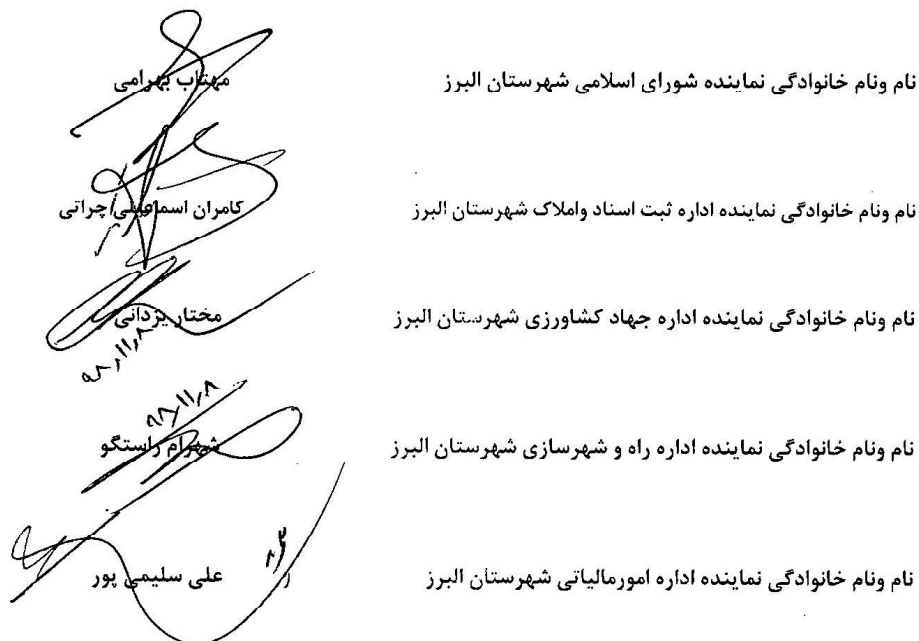 نام ونام خانوادگی نماینده شورای اسلامی شهرستان البرز مهتاب بهرامی
نام ونام خانوادگی نماینده اداره ثبت اسناد واملاک شهرستان البرز کامران اسماعیلی چراتی
نام ونام خانوادگی نماینده اداره جهاد کشاورزی شهرستان البرز مختار یزدانی
۹۸,۱۱,۸
۹۸,۱۱,۸
نام ونام خانوادگی نماینده اداره راه و شهرسازی شهرستان البرز شهرام راستگو
نام ونام خانوادگی نماینده اداره امورمالیاتی شهرستان البرز علی سلیمی پور